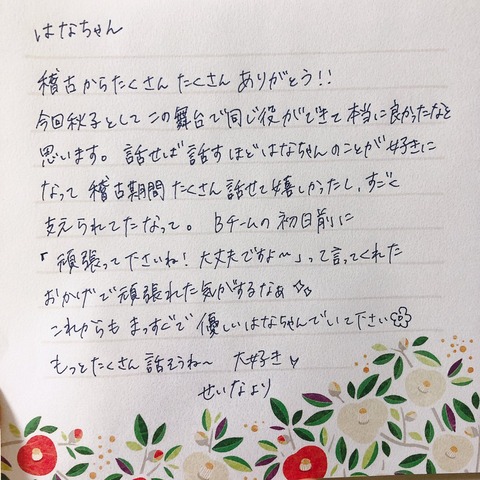 はなちゃん
稽古からたくさん たくさん ありがとう!!
今回秋子としてこの舞台で同じ役ができて本当に良かったなと
思います。話せば話すほどはなちゃんのことが好きに
なって稽古期間たくさん話せて嬉しかったし、すごく
支えられてたなって。Bチームの初日前に
「頑張って下さいね!大丈夫ですよ〜」って言ってくれた
おかげで頑張れた気がするなぁ☆☆
これからもまっすぐで優しいはなちゃんでいて下さい
もっとたくさん話そうね〜 大好き♥
せいなより